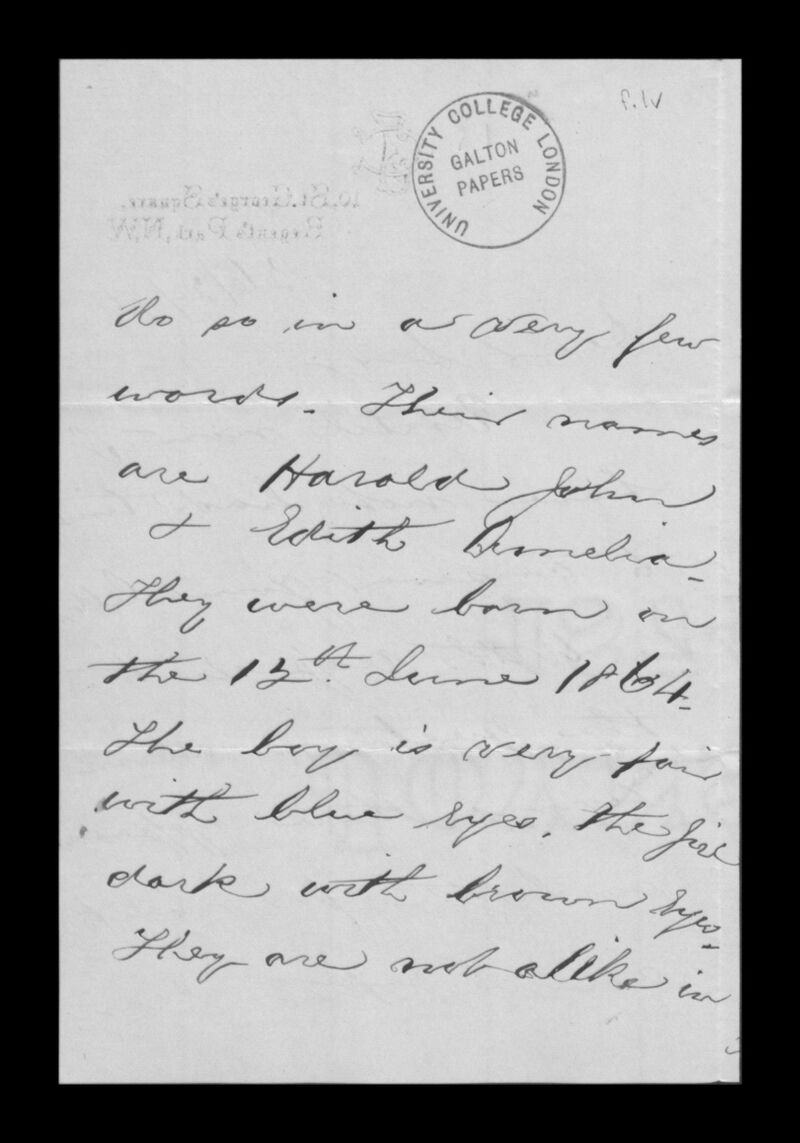 f.1v
UNIVERSITY COLLEGE LONDON
GALTON
PAPERS
10, St. George's Square,
Regent's Park, N.W.
do so in a very few
words. Their names
are Harold John
& Edith Amelia.
They were born on
the 12th June 1864.
The boy is very fair
with blue eyes, the girl
dark with brown eyes.
They are not alike in